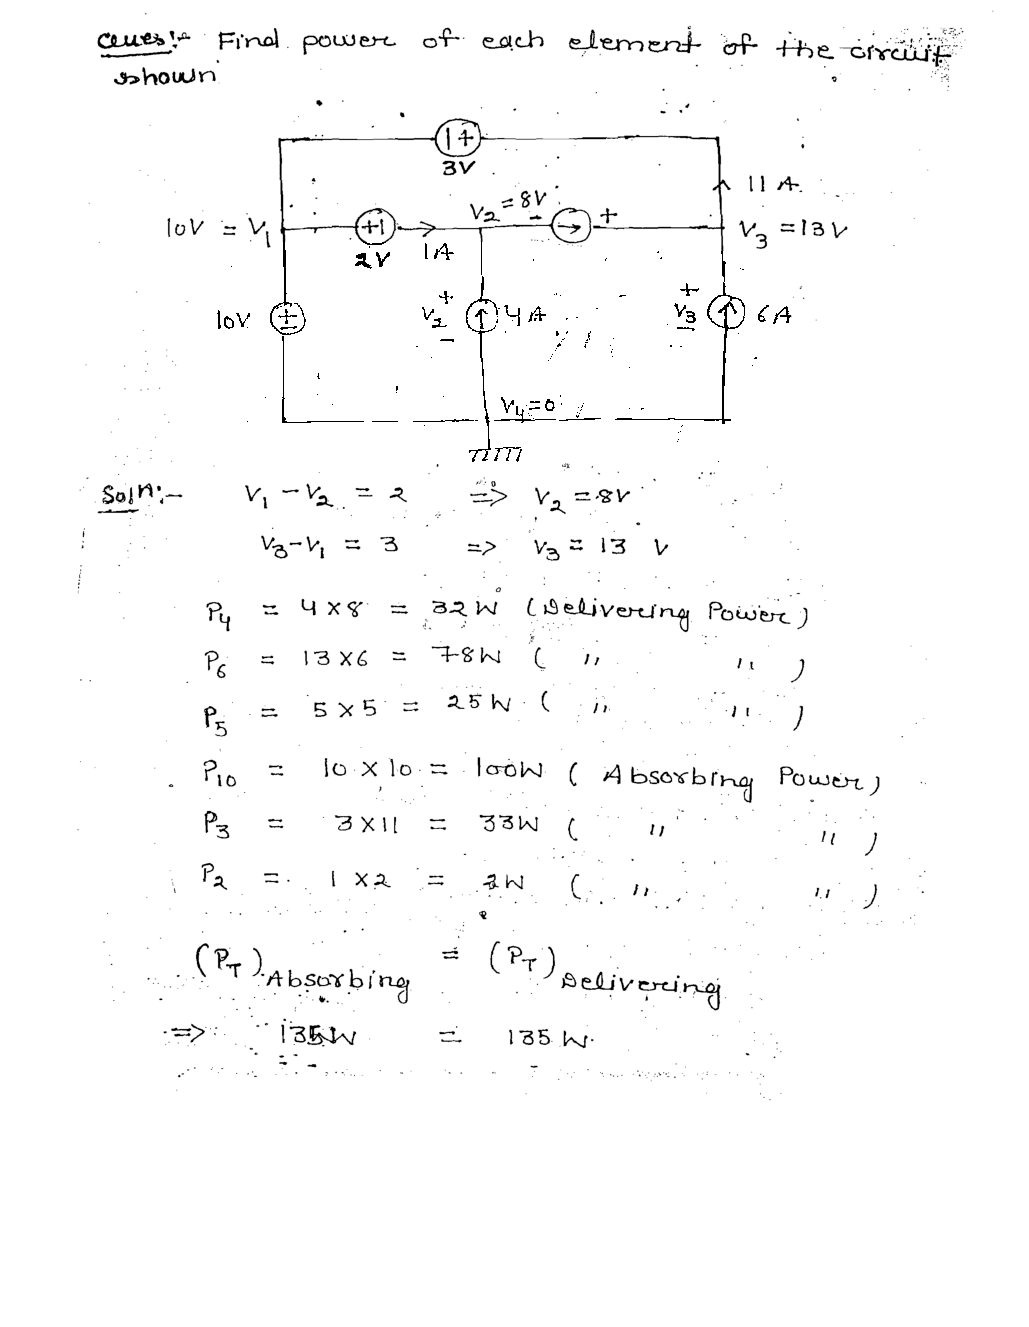 Ques:- Find power of each element of the circuit
shown
3V
11 A
10V = V1
V2 = 8V
+
V3 = 13V
2V
1A
10V
V2
4A
V3
6A
V4=0
Soln:- V1 - V2 = 2 => V2 = 8V
V3 - V1 = 3 => V3 = 13 V
P4 = 4 X 8 = 32 W (Delivering Power)
P6 = 13 X 6 = 78W ( " " )
P5 = 5 X 5 = 25W ( " " )
P10 = 10 X 10 = 100W ( Absorbing Power)
P3 = 3 X 11 = 33W ( " " )
P2 = 1 X 2 = 2W ( " " )
(PT) Absorbing = (PT) Delivering
=> 135W = 135 W.